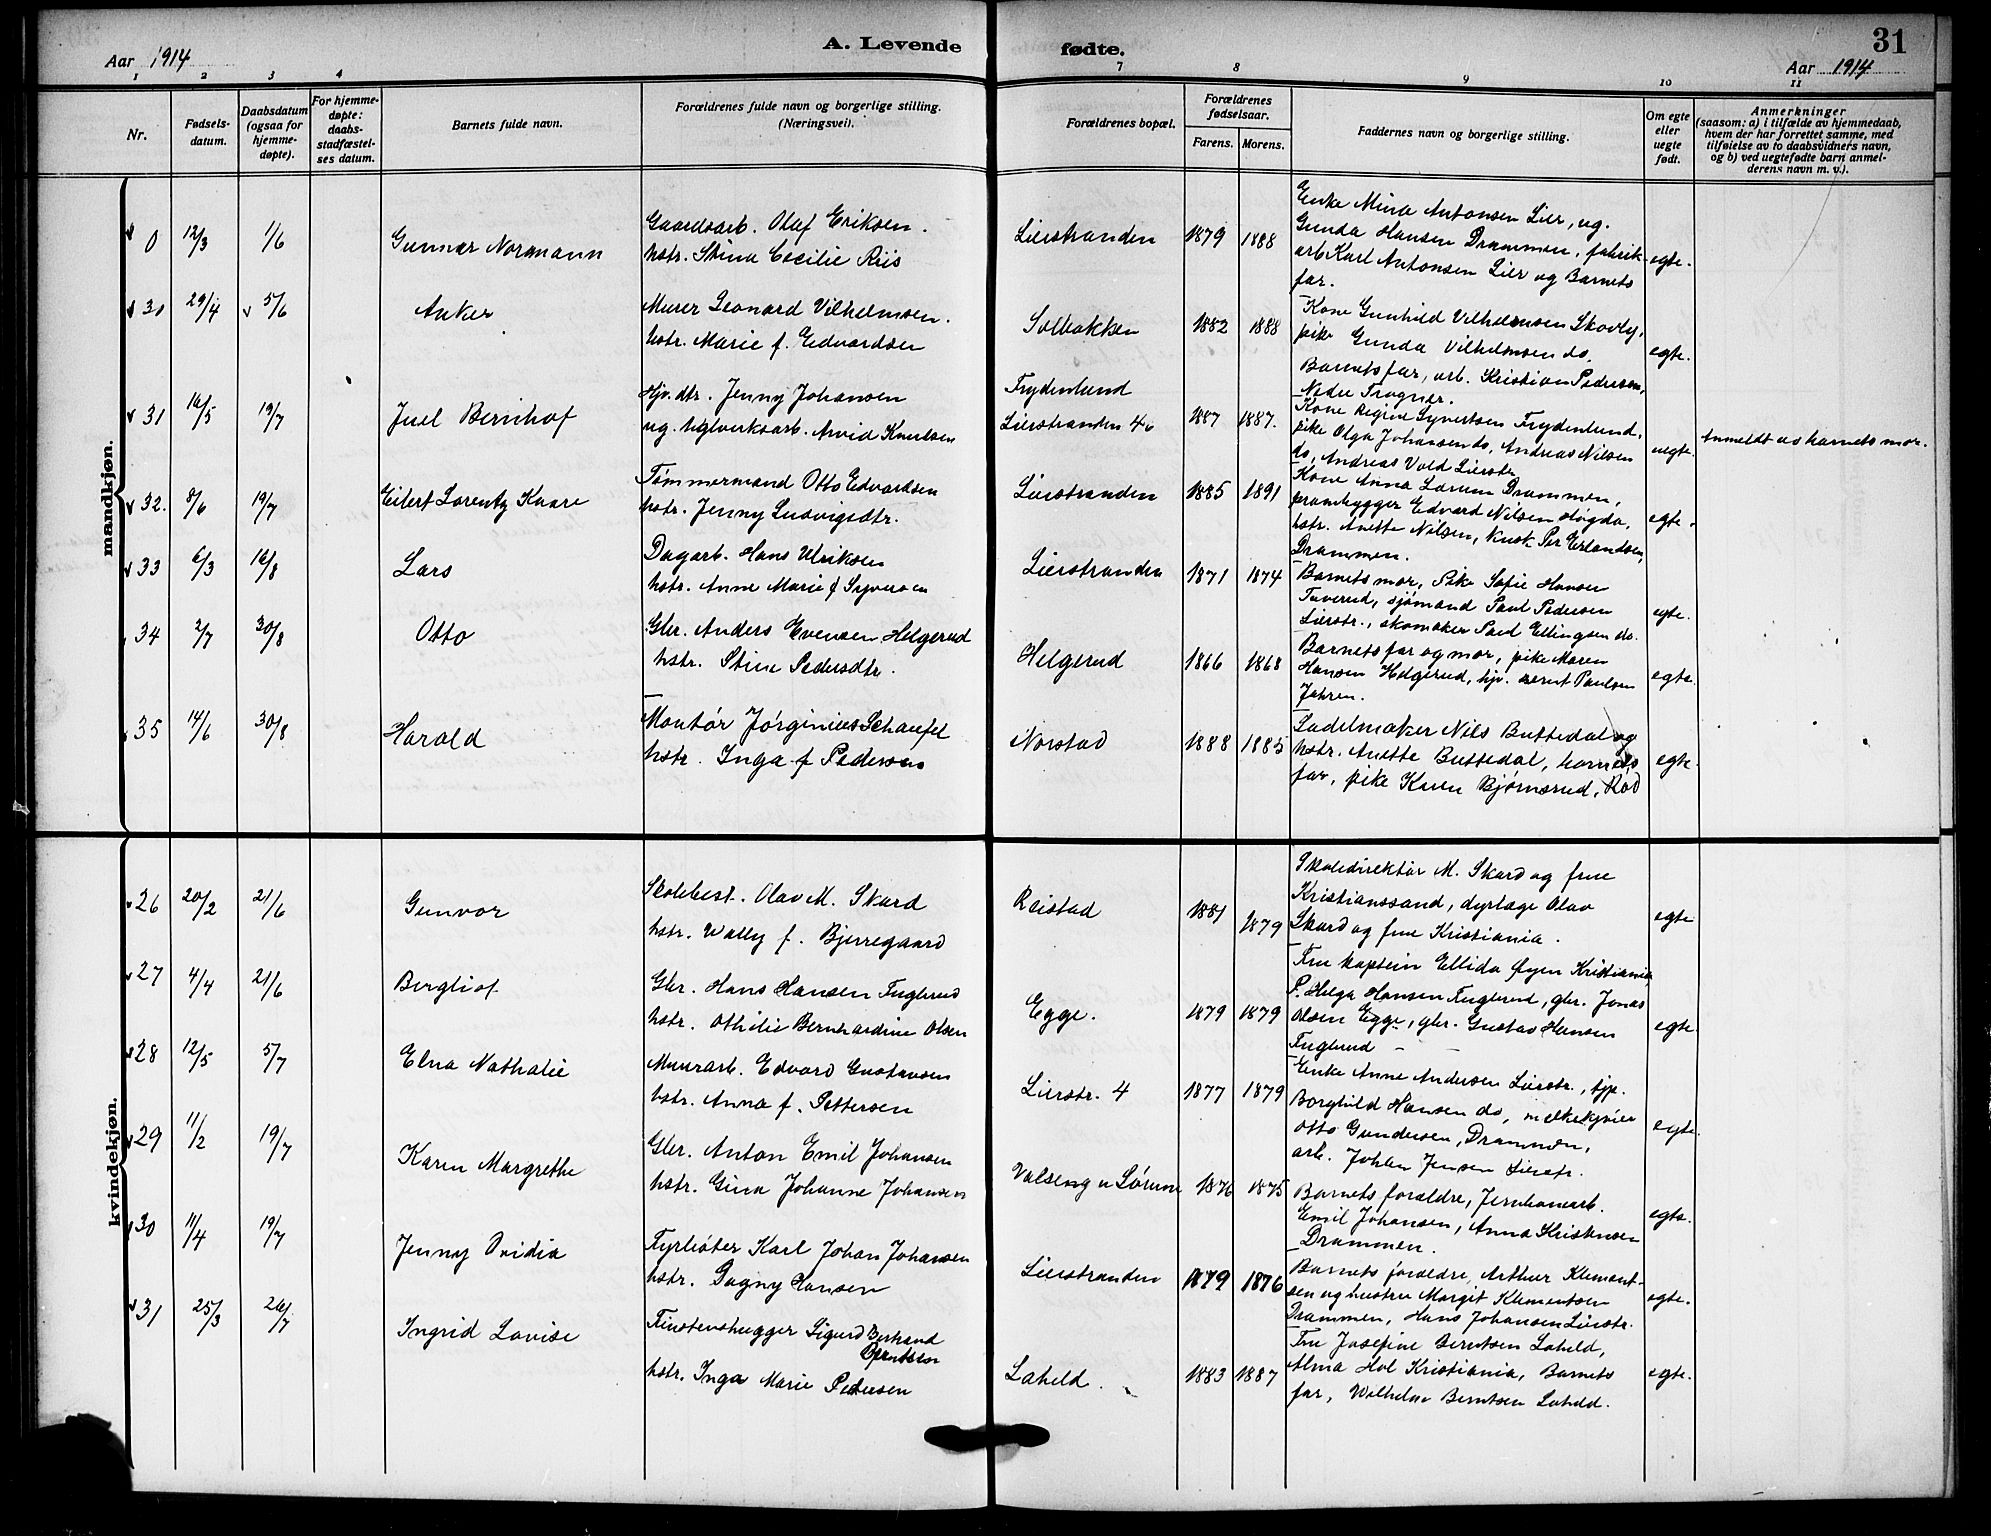 Aar 1914
A. Levende
fødte.
31
Aar 1914
1 2 3 4 7 8 9 10 11
Nr.
Fødsels-
datum.
Daabsdatum
(ogsaa for
hjemme-
døpte).
For hjemme-
døpte:
daabs-
stadfæstel-
ses datum.
Barnets fulde navn.
Forældrenes fulde navn og borgerlige stilling.
(Næringsvei).
Forældrenes bopæl.
Forældrenes
fødselsaar.
Farens. Morens.
Faddernes navn og borgerlige stilling.
Om egte
eller
uegte
født.
Anmerkninger
(saasom: a) i tilfælde av hjemmedaab,
hvem der har forrettet samme, med
tilføielse av to daabsvidners navn,
og b) ved uegtefødte barn anmel-
derens navn m. v.).
mandkjøn.
0 12/3 1/6
Gunnar Normann
Gaardsarb. Olaf Eriksen.
hstr. Stina Cecilie Riis
Lierstranden 1879 1888
Enke Mina Antonsen Lier, ug.
Gunda Hansen Drammen, fabrik-
arb Karl Antonsen Lier og Barnets
far.
egte.
30 29/4 5/6
Anker
Murer Leonard Vilhelmsen.
hstr. Marie f. Edvardsen
Solbakken 1882 1888
Kone Gunhild Vilhelmsen Skovly,
pike Gunda Vilhelmsen do.
Barnets far, arb. Kristian Pedersen,
Nedre Frogner.
egte.
31 16/5 19/7
Juel Bernhof
Hjv. dtr. Jenny Johansen
ug. teglverksarb. Arvid Knutsen
Frydenlund
Lierstranden 4b 1887 1887.
Kone Regine Syvertsen Frydenlund,
pike Olga Johansen do, Andreas Nilsen
do, Andreas Vold Lierstr.
uegte.
Anmeldt av barnets mor.
32. 8/6 19/7
Eilert Lorentz Kaare
Tømmermand Otto Edvardsen
hstr. Jenny Ludvigsdtr.
Lierstranden 1885 1891
Kone Anna Larum Drammen,
prambygger Edvard Nilsen Høgda,
hstr. Anette Nilsen, Kusk Per Erlandsen,
Drammen.
egte.
33 6/3 16/8
Lars
Dagarb. Hans Ulriksen
hstr. Anne Marie f Syversen
Lierstranden 1871 1874
Barnets mor, Pike Sofie Hansen
Tuverud, sjømand Paul Pedersen
Lierstr., skomaker Paul Ellingsen do.
egte.
34 2/7 30/8
Otto
Gbr. Anders Evensen Helgerud
hstr. Stine Pedersdtr.
Helgerud 1866 1868
Barnets far og mor, pike Maren
Hansen Helgerud, hjv. Bernt Paulsen
Jahren.
egte.
35 14/6 30/8
Harald
Montør Jørginius Schaufel
hstr. Inga f Pedersen
Norstad 1888 1885
Sadelmaker Nils Buttedal og
hstr. Anette Buttedal, barnets
far, pike Karen Bjørnerud, Rød
egte.
kvindekjøn.
26 20/2 21/6
Gunvor
Skolebest. Olav M. Skard
hstr. Wally f. Bjerregaard
Reistad 1881 1879
Skoledirektør M. Skard og frue
Kristianssand, dyrlæge Olav
Skard og frue Kristiania.
egte
27 4/4 21/6
Bergliot
Gbr. Hans Hansen Fuglerud
hstr. Othilie Bernhardine Olsen
Egge. 1879 1879
Fru kaptein Ellida Øyen Kristiania
P. Helga Hansen Fuglerud, gbr. Jonas
Olsen Egge, gbr. Gustav Hansen
Fuglerud
egte.
28 12/5 5/7
Elna Nathalie
Murarb. Edvard Gustavsen
hstr. Anna f. Pettersen
Lierstr. 4 1877 1879
Enke Anne Andersen Lierstr., tjp.
Borghild Hansen do, melkekjører
Otto Gundersen, Drammen,
arb. Johan Jensen Lierstr.
egte.
29 11/2 19/7
Karen Margrethe
Gbr. Anton Emil Johansen
hstr. Gina Johanne Johansen
Valseng u Sørum 1876 1875
Barnets forældre, Jernbanearb.
Emil Johansen, Anna Kristensen
Drammen.
egte.
30 11/4 19/7
Jenny Ovidia
Fyrbøter Karl Johan Johansen
hstr. Dagny Hansen
Lierstranden 1879 1876
Barnets forældre, Arthur Klement-
sen og hustru Margit Klementsen
Drammen, Hans Johansen Lierstr.
egte.
31 25/3 26/7
Ingrid Lovise
Finstenshugger Sigurd Bertrand
Berntsen
hstr. Inga Marie Pedersen
Laheld. 1883 1887
Fru Josefine Berntsen Laheld,
Alma Hol Kristiania, Barnets
far, Wilhelm Berntsen Laheld.
egte.